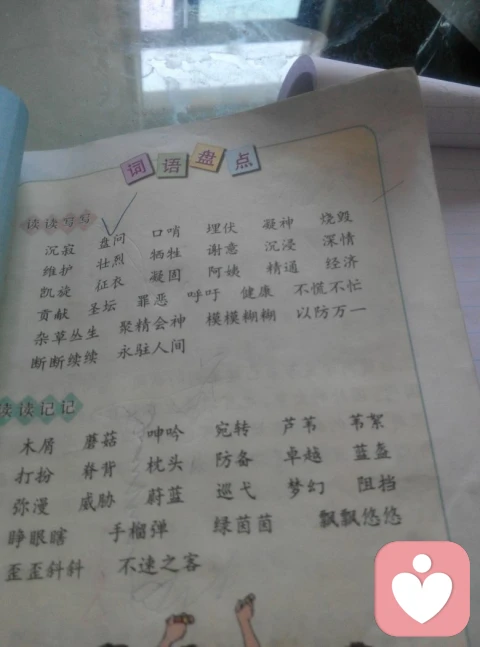 词语盘点
读读写写
沉寂 盘问 口哨 埋伏 凝神 烧毁
维护 壮烈 牺牲 谢意 沉浸 深情
凯旋 征衣 凝固 阿姨 精通 经济
贡献 圣坛 罪恶 呼吁 健康 不慌不忙
杂草丛生 聚精会神 模模糊糊 以防万一
断断续续 永驻人间
读读记记
木屑 蘑菇 呻吟 宛转 芦苇 苇絮
打扮 脊背 枕头 防备 卓越 蓝盔
弥漫 威胁 蔚蓝 巡弋 梦幻 阻挡
睁眼瞎 手榴弹 绿茵茵 飘飘悠悠
歪歪斜斜 不速之客